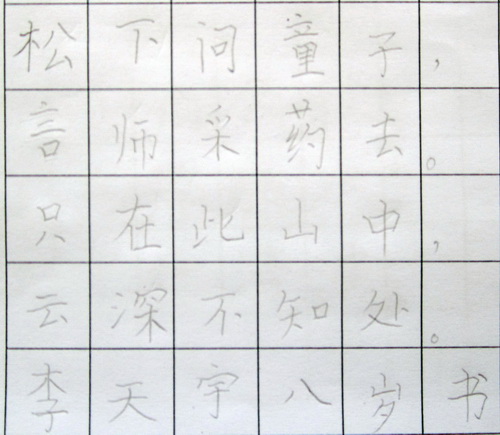 松下问童子，
言师采药去。
只在此山中，
云深不知处。
李天宇八岁书